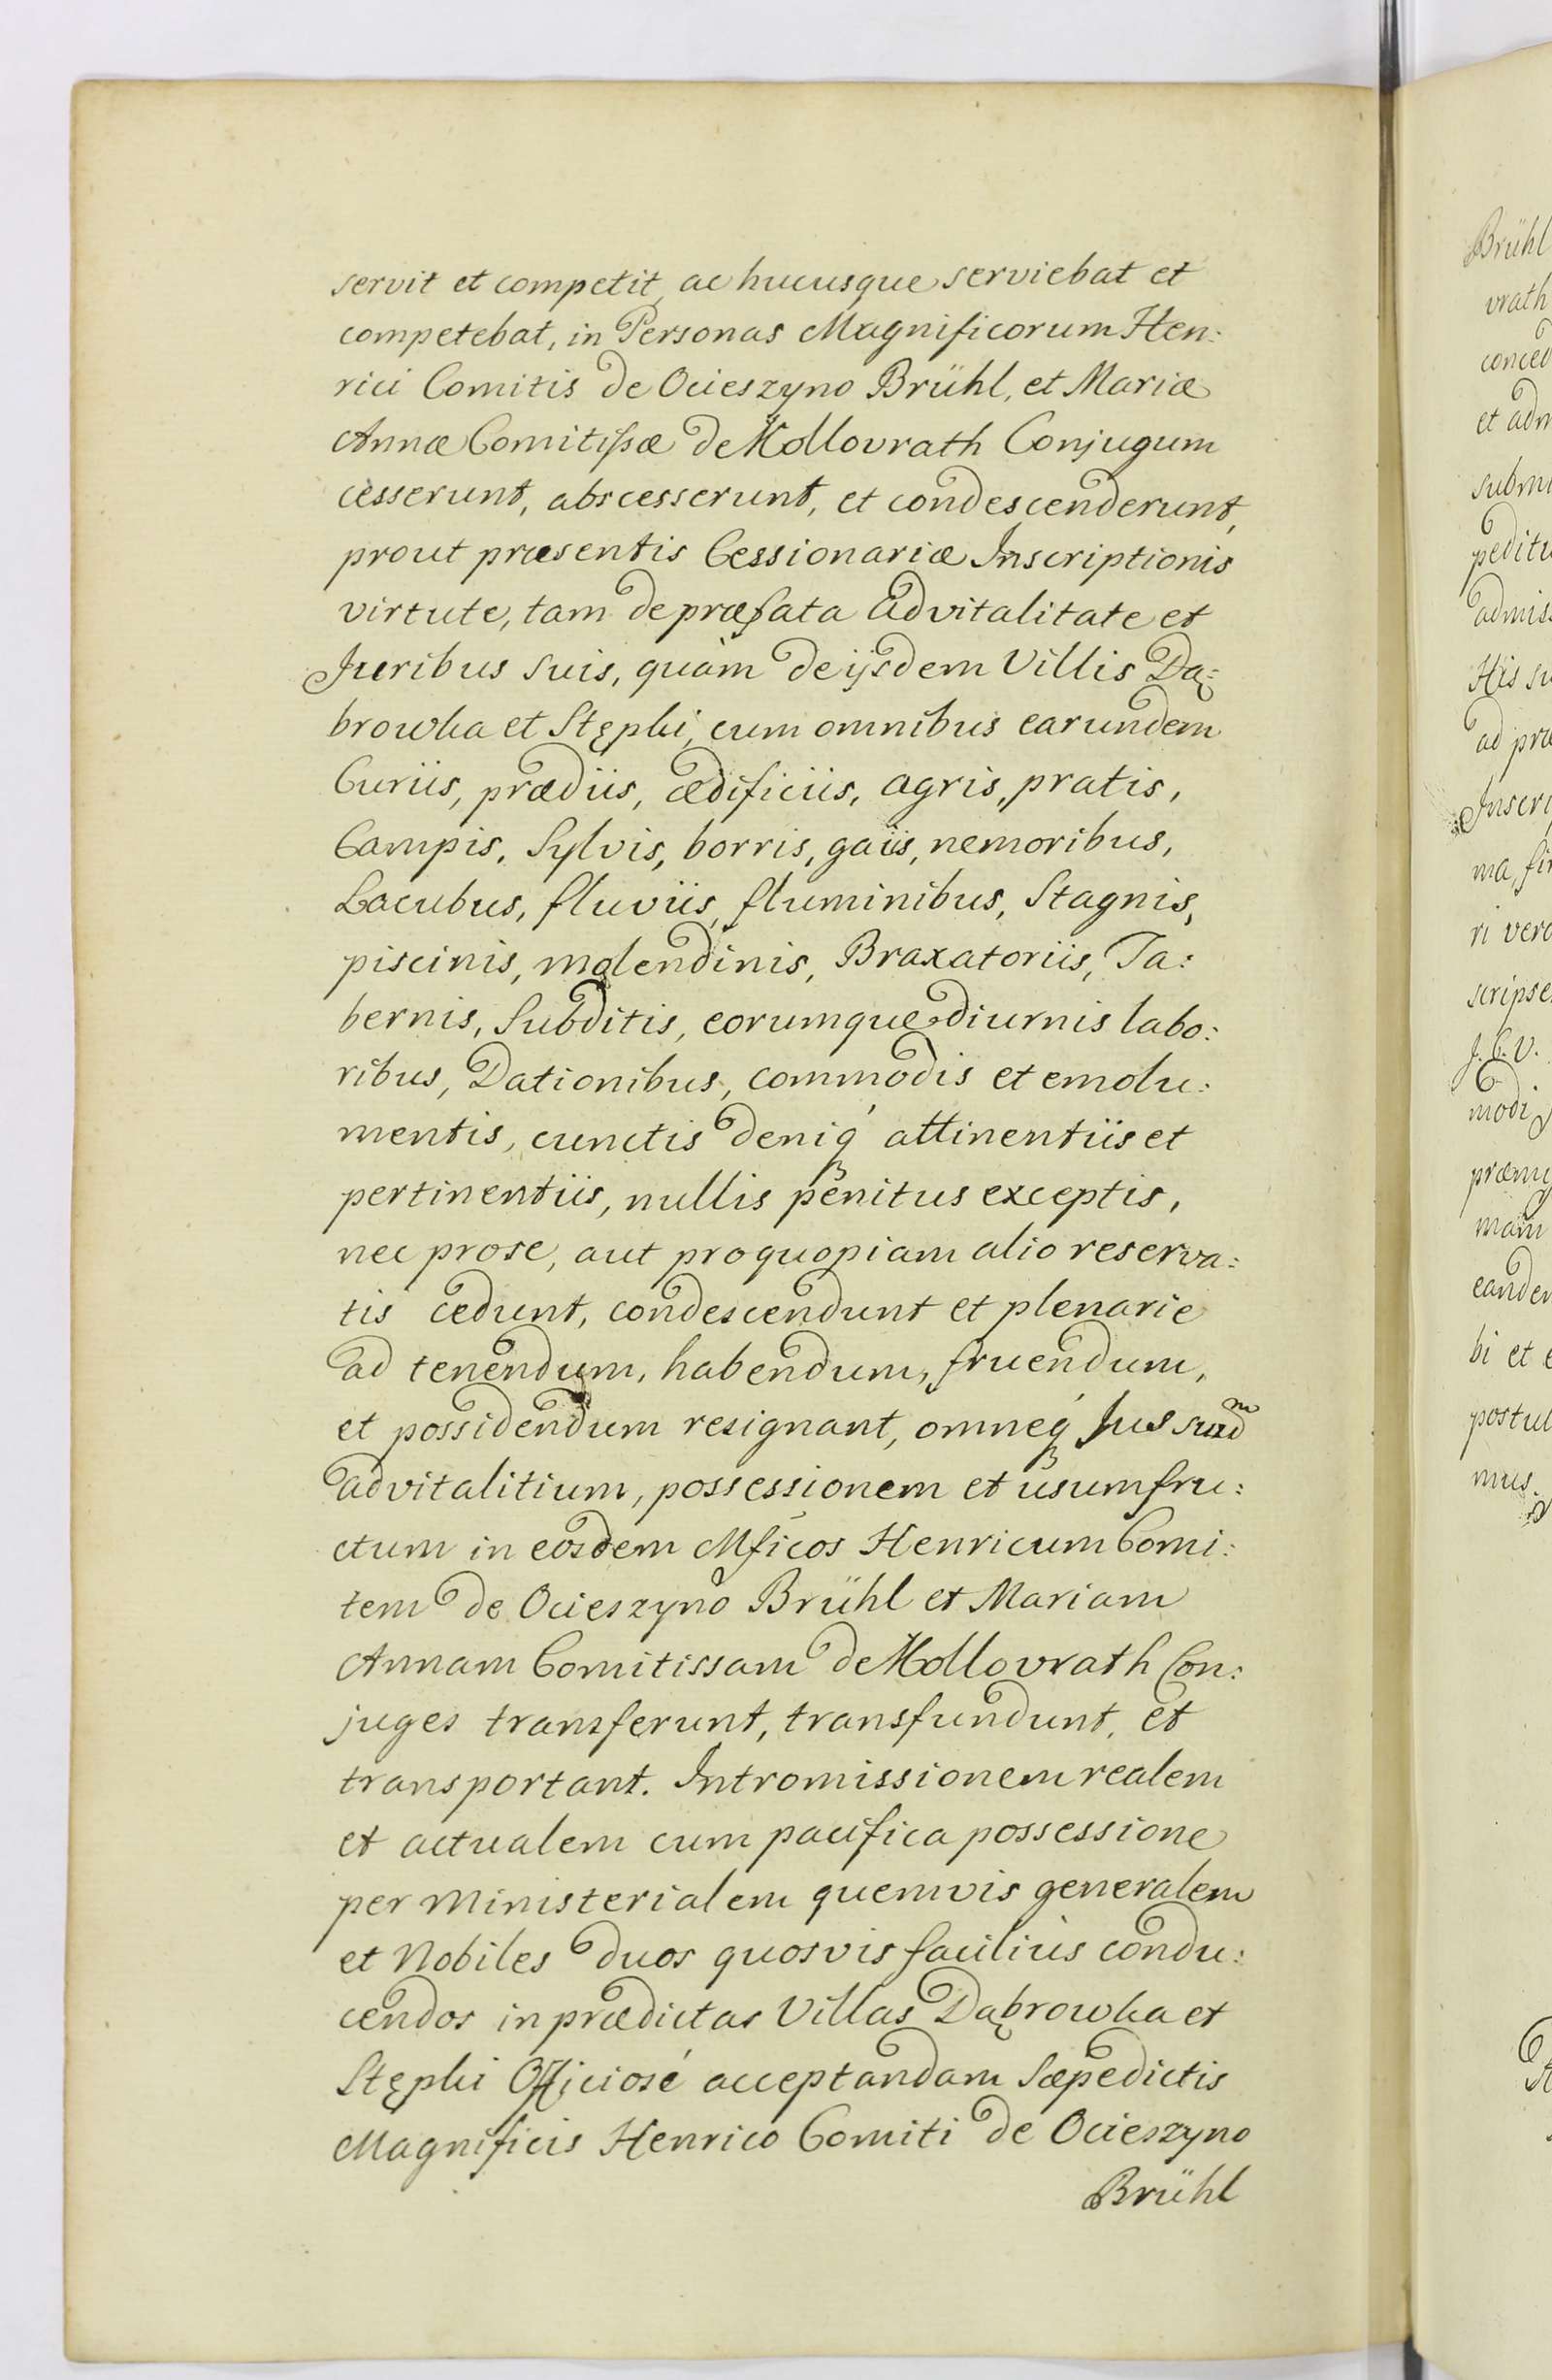 servit et competit, ac hucusque serviebat et
competebat, in Personas Magnificorum Hen:
rici Comitis de Ocieszyno Brühl, et Mariæ
Annæ Comitißæ de Kollovrath Conjugum
cesserunt, abscesserunt, et condescenderunt,
prout præsentis Cessionariæ Inscriptionis
virtute, tam de præfata advitalitate et
Juribus suis, quàm de ijsdem Villis Dą:
browka et Stępki, cum omnibus earundem
Curiis, prædiis, ædificiis, agris, pratis,
Campis, Sylvis, borris, gaiis, nemoribus,
Lacubus, fluviis, fluminibus, Stagnis,
piscinis, molendinis, Braxatoriis, Ta:
bernis, Subditis, eorumque diurnis labo:
ribus, Dationibus, commodis et emolu:
mentis, cunctis deniq́ attinentiis et
pertinentiis, nullis penitus exceptis,
nec pro se, aut pro quopiam alio reserva:
tis cedunt, condescendunt et plenarie
ad tenendum, habendum, fruendum,
et possidendum resignant, omneq́ Jus suũ
advitalitium, possessionem et usumfru:
ctum in eosdem Mficos Henricum Comi:
tem de Ocieszyno Brühl et Mariam
Annam Comitissam de Kollovrath Con:
juges transferunt, transfundunt, et
transportant. Intromissionem realem
et actualem cum pacifica possessione
per Ministerialem quemvis generalem
et Nobiles duos quosvis faciliùs condu:
cendos in prædictas Villas Dąbrowka et
Stępki Officiosé acceptandam Sæpedictis
Magnificis Henrico Comiti de Ocieszyno
Brühl
Brühl
vrath
et adm
ad præ
ri vero
J. C. V.
modi
mam
bi et
postul
mus.